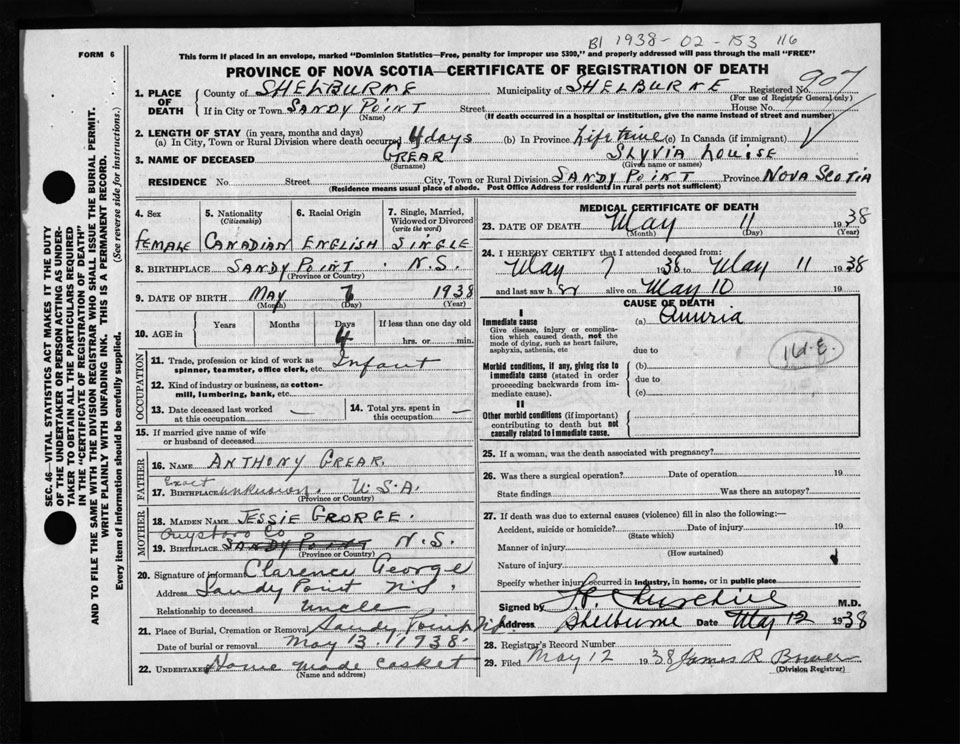 B1 1938-02-153 116
FORM 6
This form if placed in an envelope, marked "Dominion Statistics—Free, penalty for improper use $300," and properly addressed will pass through the mail "FREE"
PROVINCE OF NOVA SCOTIA—CERTIFICATE OF REGISTRATION OF DEATH
907
1. PLACE OF DEATH
County of SHELBURNE Municipality of SHELBURNE Registered No.
(For use of Registrar General only)
If in City or Town SANDY POINT Street House No.
(Name) (If death occurred in a hospital or institution, give the name instead of street and number)
2. LENGTH OF STAY (in years, months and days)
(a) In City, Town or Rural Division where death occurred 4 days (b) In Province Life time (c) In Canada (if immigrant)
3. NAME OF DECEASED GREAR SLYVIA LOUISE
(Surname) (Given name or names)
RESIDENCE No. Street City, Town or Rural Division SANDY POINT Province NOVA SCOTIA
(Residence means usual place of abode. Post Office Address for residents in rural parts not sufficient)
4. Sex FEMALE
5. Nationality (Citizenship) CANADIAN
6. Racial Origin ENGLISH
7. Single, Married, Widowed or Divorced (write the word) SINGLE
8. BIRTHPLACE SANDY POINT. N.S.
(Province or Country)
9. DATE OF BIRTH MAY 7 1938
(Month) (Day) (Year)
10. AGE in Years Months Days If less than one day old
4 hrs. or min.
OCCUPATION
11. Trade, profession or kind of work as spinner, teamster, office clerk, etc. Infant
12. Kind of industry or business, as cotton-mill, lumbering, bank, etc.
13. Date deceased last worked at this occupation —
14. Total yrs. spent in this occupation —
15. If married give name of wife or husband of deceased
FATHER
16. NAME ANTHONY GREAR.
Exact
17. BIRTHPLACE unknown. U.S.A.
(Province or Country)
MOTHER
18. MAIDEN NAME JESSIE GEORGE.
Guysboro Co
19. BIRTHPLACE SANDY POINT N.S.
(Province or Country)
20. Signature of informant Clarence George
Address Sandy Point N.S.
Relationship to deceased uncle
21. Place of Burial, Cremation or Removal Sandy Point N.S.
Date of burial or removal May 13. 1938.
22. UNDERTAKER Home made casket
(Name and address)
MEDICAL CERTIFICATE OF DEATH
23. DATE OF DEATH May 11 1938
(Month) (Day) (Year)
24. I HEREBY CERTIFY that I attended deceased from:
May 7 1938 to May 11 1938
and last saw her alive on May 10 19
CAUSE OF DEATH
I
Immediate cause (a) Anuria
Give disease, injury or complication which caused death, not the mode of dying, such as heart failure, asphyxia, asthenia, etc
due to
161-E.
Morbid conditions, if any, giving rise to immediate cause (stated in order proceeding backwards from immediate cause).
(b)
due to
(c)
II
Other morbid conditions (if important) contributing to death but not causally related to immediate cause.
25. If a woman, was the death associated with pregnancy?
26. Was there a surgical operation? Date of operation 19
State findings Was there an autopsy?
27. If death was due to external causes (violence) fill in also the following:—
Accident, suicide or homicide? Date of injury 19
(State which)
Manner of injury
(How sustained)
Nature of injury
Specify whether injury occurred in industry, in home, or in public place
Signed by Churchill M.D.
Address Shelburne Date May 12 1938
28. Registrar's Record Number
29. Filed May 12 1938 James R Bower
(Division Registrar)
SEC. 46—VITAL STATISTICS ACT MAKES IT THE DUTY
OF THE UNDERTAKER OR PERSON ACTING AS UNDER-
TAKER TO OBTAIN ALL THE PARTICULARS REQUIRED
IN THE "CERTIFICATE OF REGISTRATION OF DEATH"
AND TO FILE THE SAME WITH THE DIVISION REGISTRAR WHO SHALL ISSUE THE BURIAL PERMIT.
WRITE PLAINLY WITH UNFADING INK. THIS IS A PERMANENT RECORD.
Every item of information should be carefully supplied. (See reverse side for instructions.)